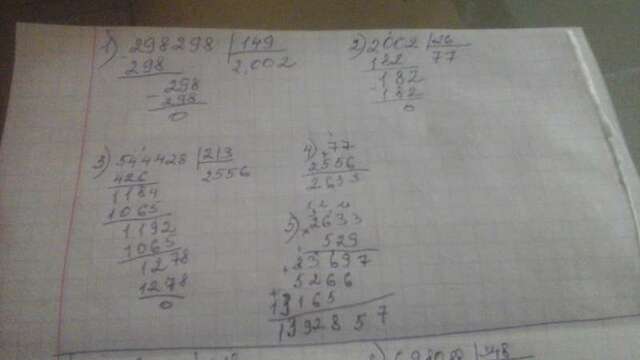 1) 298298 | 149
298 2,002
298
- 298
0
2) 2002 | 26
182 77
182
182
0
3) 544428 | 213
426 2556
1184
1065
1192
1065
1278
1278
0
4) 77
2556
2633
5) 2633
× 529
23697
+ 5266
13165
1392857